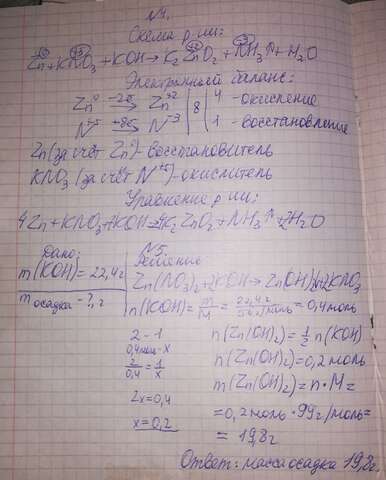 №1.
Схема р-ии:
Zn⁰+KN⁺⁵O₃+KOH→K₂Zn⁺²O₂+N⁻³H₃↑+H₂O
Электронный баланс:
Zn⁰ -2e→ Zn⁺² | 8 | 4 - окисление
N⁺⁵ +8e→ N⁻³ | | 1 - восстановление
Zn(за счёт Zn⁰)-восстановитель
KNO₃ (за счёт N⁺⁵)-окислитель
Уравнение р-ии:
4Zn+KNO₃+7KOH→4K₂ZnO₂+NH₃↑+2H₂O
№5.
Дано:
m(KOH)=22,4г
m осадка-?, г
Решение
Zn(NO₃)₂+2KOH→Zn(OH)₂↓+2KNO₃
n(KOH)=m/M=22,4г/56г/моль=0,4моль
2 - 1
0,4моль-x
2/0,4=1/x
2x=0,4
x=0,2
n(Zn(OH)₂)=1/2 n(KOH)
n(Zn(OH)₂)=0,2 моль
m(Zn(OH)₂)=n·M=
=0,2моль·99г/моль=
=19,8г
Ответ: масса осадка 19,8г.